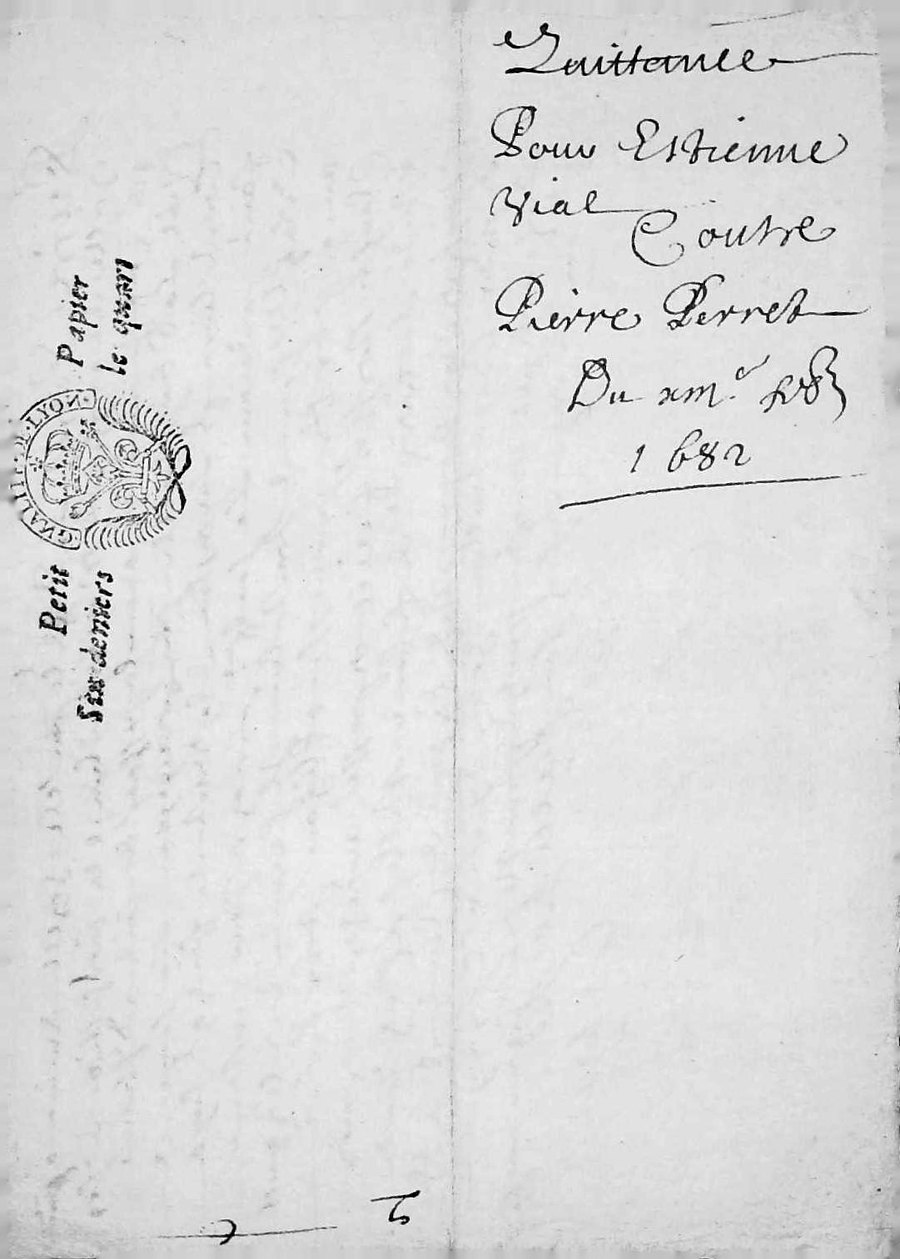 Quittance
Pour Estienne
Vial
Contre
Pierre Perret
Du xm.e
1682
Petit Papier
Six deniers le quart
LYON
2